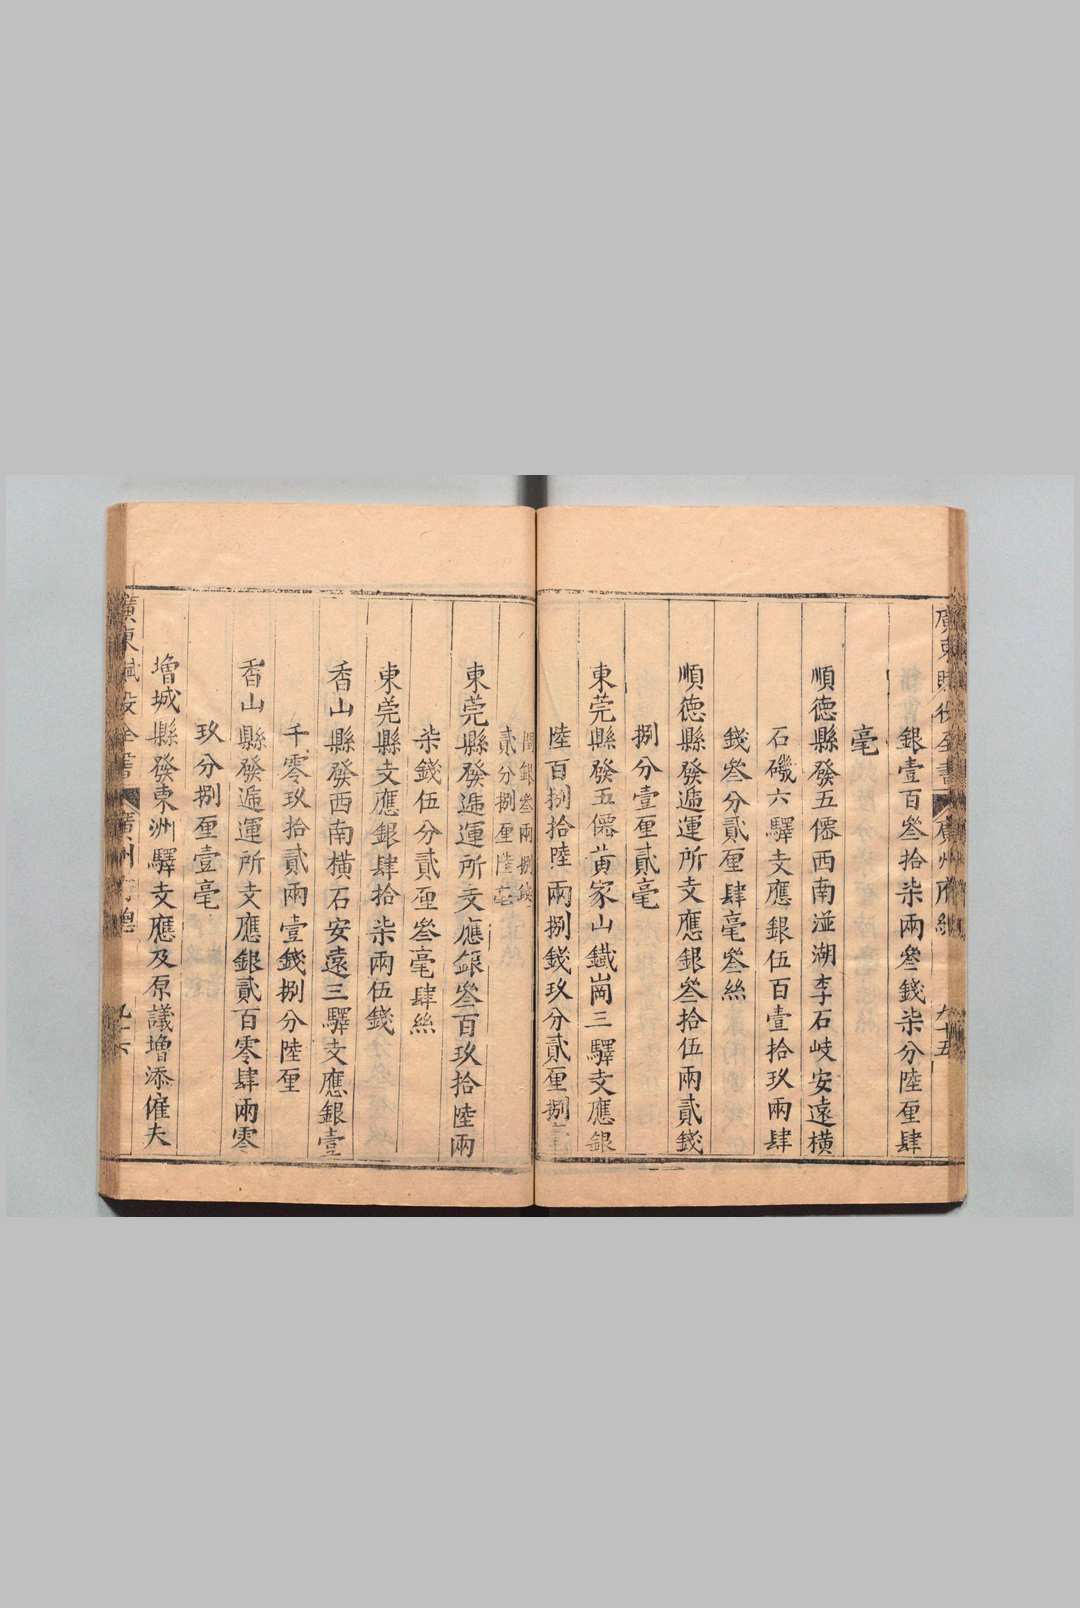 廣東賦役全書 廣州府總 九十五
銀壹百叁拾柒兩叁錢柒分陸厘肆
毫
順德縣發五僊西南湴湖李石岐安遠橫
石磯六驛支應銀伍百壹拾玖兩肆
錢叁分貳厘肆毫叁絲
順德縣發遞運所支應銀叁拾伍兩貳錢
捌分壹厘貳毫
東莞縣發五僊黃家山鐵崗三驛支應銀
陸百捌拾陸兩捌錢玖分貳厘捌毫
閏銀叁兩捌錢
貳分捌厘陸毫
東莞縣發遞運所支應銀叁百玖拾陸兩
柒錢伍分貳厘叁毫肆絲
東莞縣支應銀肆拾柒兩伍錢
香山縣發西南橫石安遠三驛支應銀壹
千零玖拾貳兩壹錢捌分陸厘
香山縣發遞運所支應銀貳百零肆兩零
玖分捌厘壹毫
增城縣發東洲驛支應及原議增添僱夫
廣東賦役全書 廣州府總 九十六